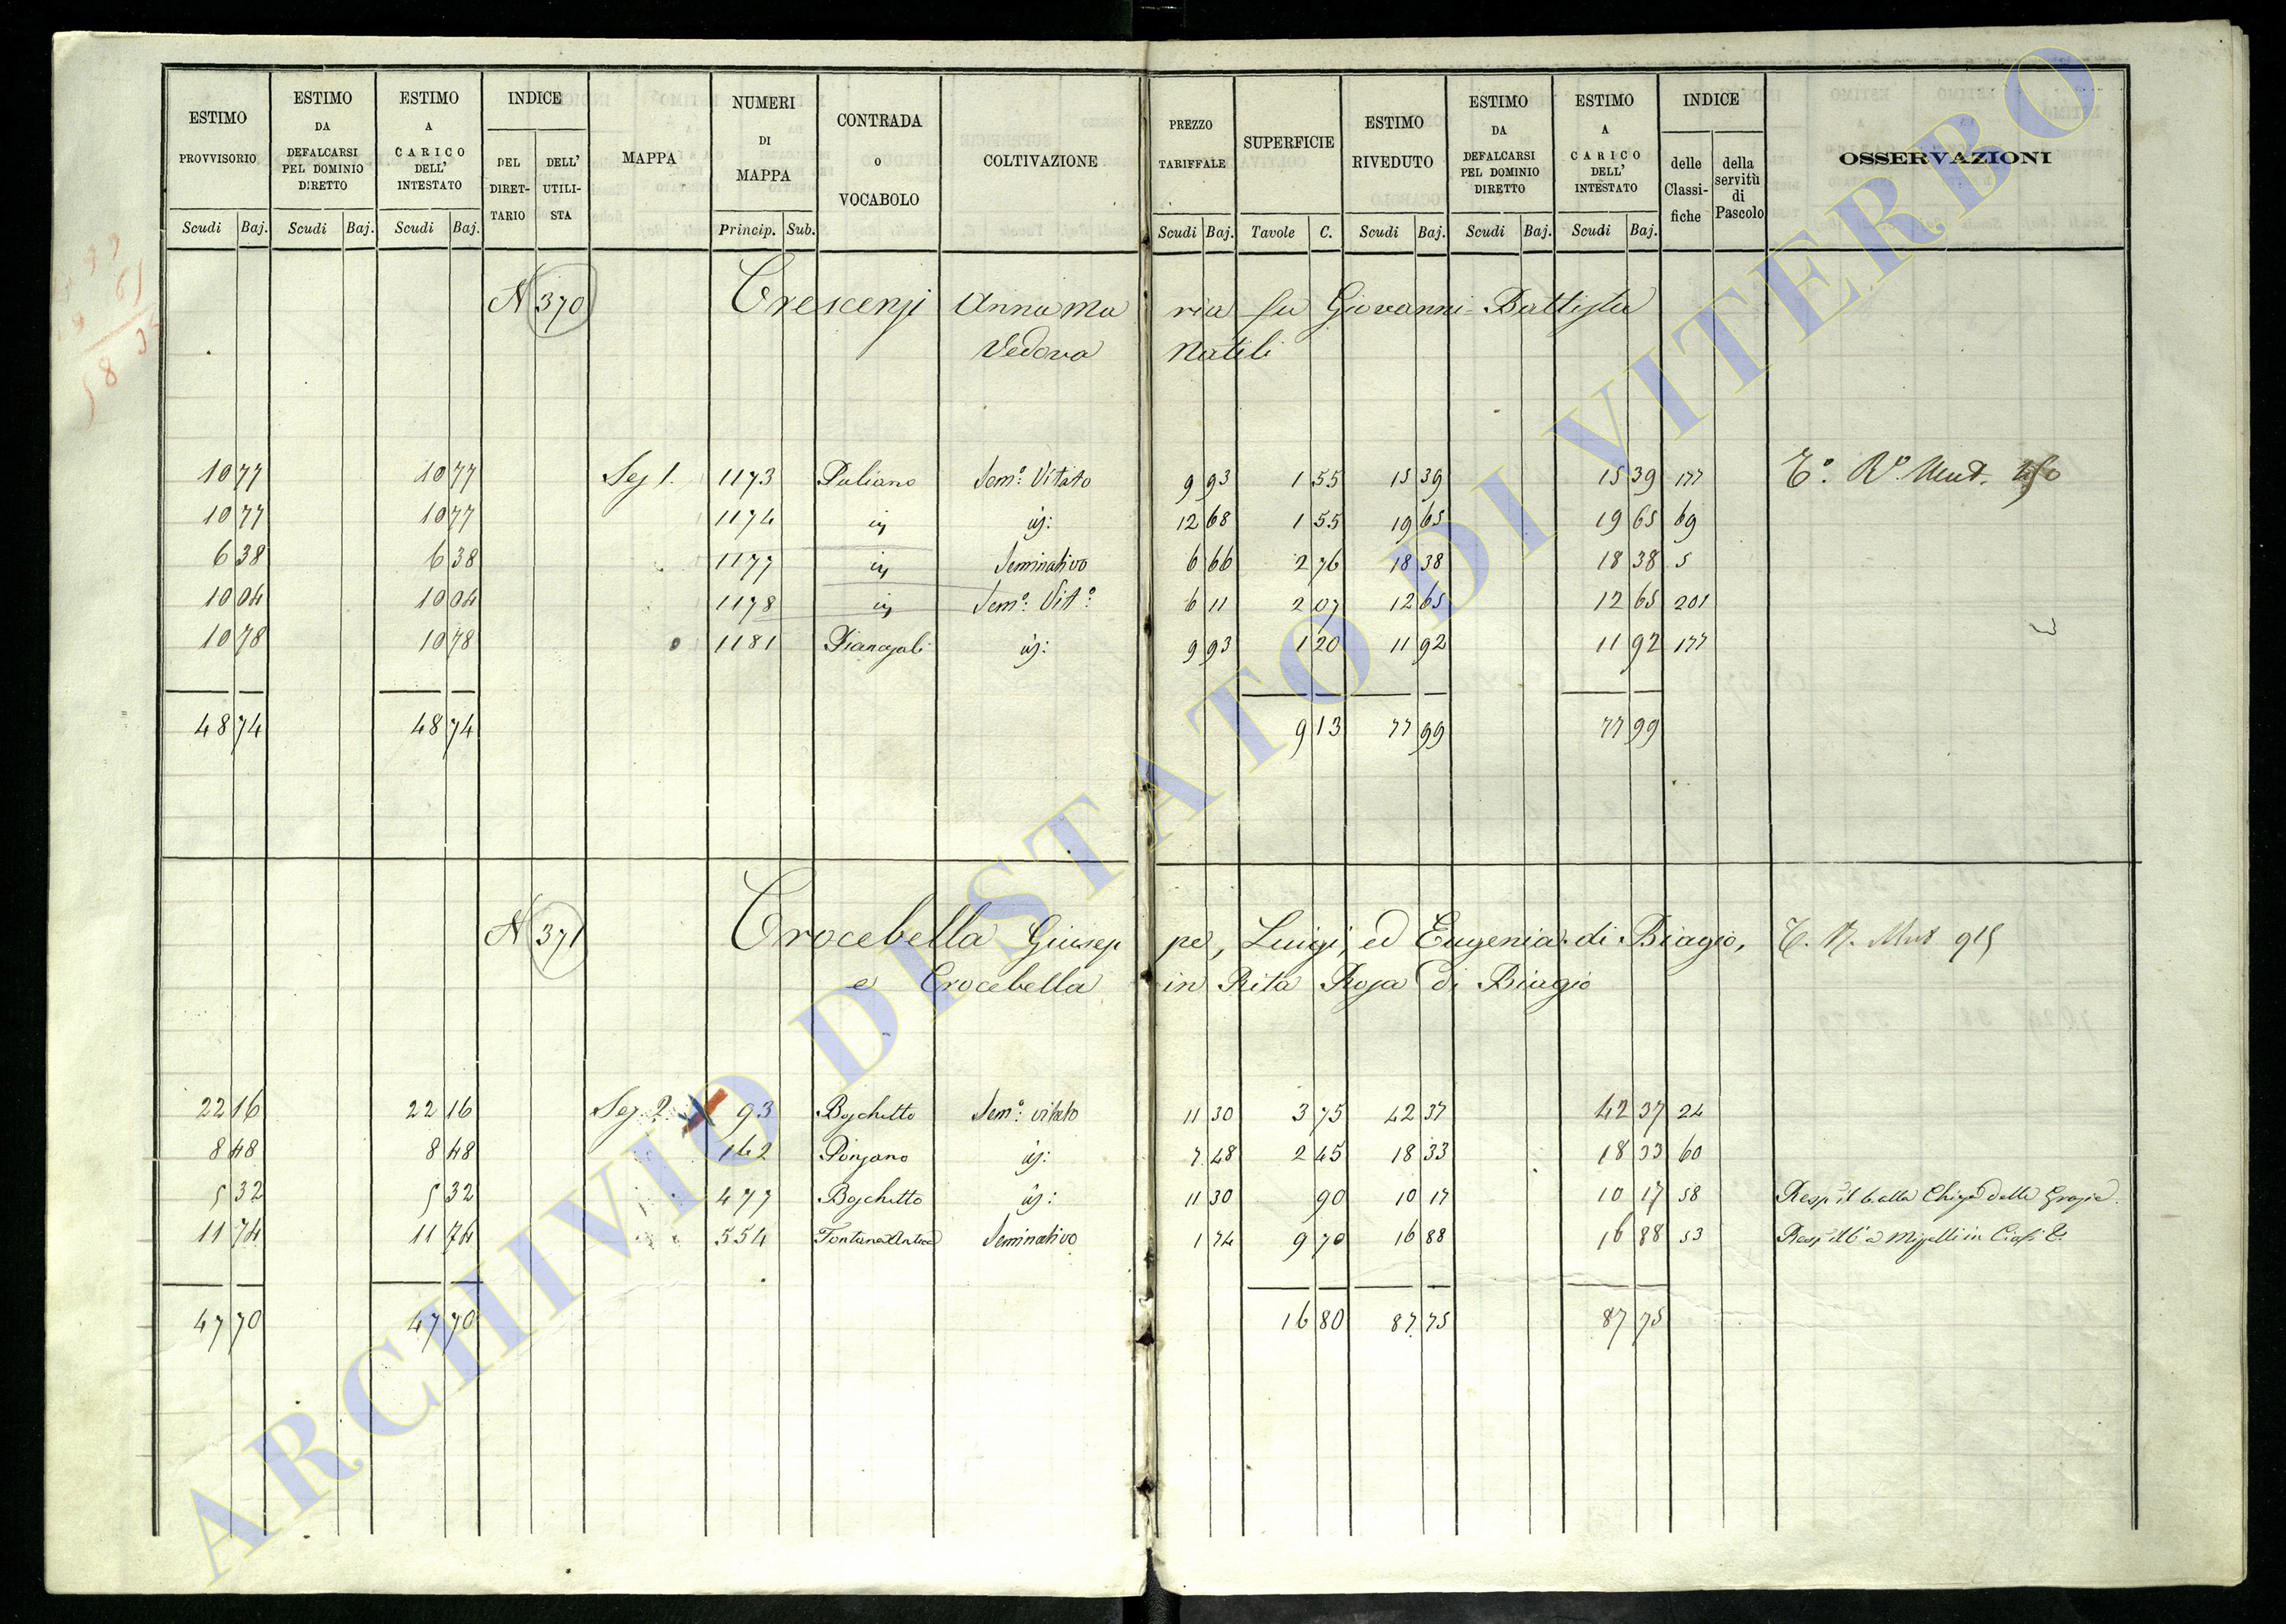 ESTIMO PROVVISORIO Scudi Baj. ESTIMO DA DEFALCARSI PEL DOMINIO DIRETTO Scudi Baj. ESTIMO A CARICO DELL' INTESTATO Scudi Baj. INDICE DEL DIRET-TARIO DELL' UTILI-STA MAPPA NUMERI DI MAPPA Princip. Sub. CONTRADA O VOCABOLO COLTIVAZIONE PREZZO TARIFFALE Scudi Baj. SUPERFICIE Tavole C. ESTIMO RIVEDUTO Scudi Baj. ESTIMO DA DEFALCARSI PEL DOMINIO DIRETTO Scudi Baj. ESTIMO A CARICO DELL' INTESTATO Scudi Baj. INDICE delle Classi-fiche della servitù di Pascolo OSSERVAZIONI
N 370 Crescenzi Anna Maria fu Giovanni Battista
Vedova Natili
10 77 10 77 Sez 1. 1173 Puliano Semo: Vitato 9 93 1 55 15 39 15 39 177
10 77 10 77 1174 12 68 1 55 19 65 19 65 69
6 38 6 38 1177 Seminativo 6 66 2 76 18 38 18 38 5
10 04 10 04 1178 Semo: Vito 6 11 2 07 12 65 12 65 201
10 78 10 78 1181 9 93 1 20 11 92 11 92 177
48 74 48 74 9 13 77 99 77 99
N 371 Crocebella Giuseppe, Luigi, ed Eugenia di Biagio, 915
e Crocebella in Rita Rosa di Biagio
22 16 22 16 Sez. 2 93 Boschetto Semo: vitato 11 30 3 75 42 37 42 37 24
8 48 8 48 162 Ponzano 7 48 2 45 18 33 18 33 60
5 32 5 32 477 Boschetto 11 30 90 10 17 10 17 58 alla Chiesa delle Grazie.
11 74 11 74 554 Fontana Antica Seminativo 1 74 9 70 16 88 16 88 53
47 70 47 70 16 80 87 75 87 75
ARCHIVIO DI STATO DI VITERBO